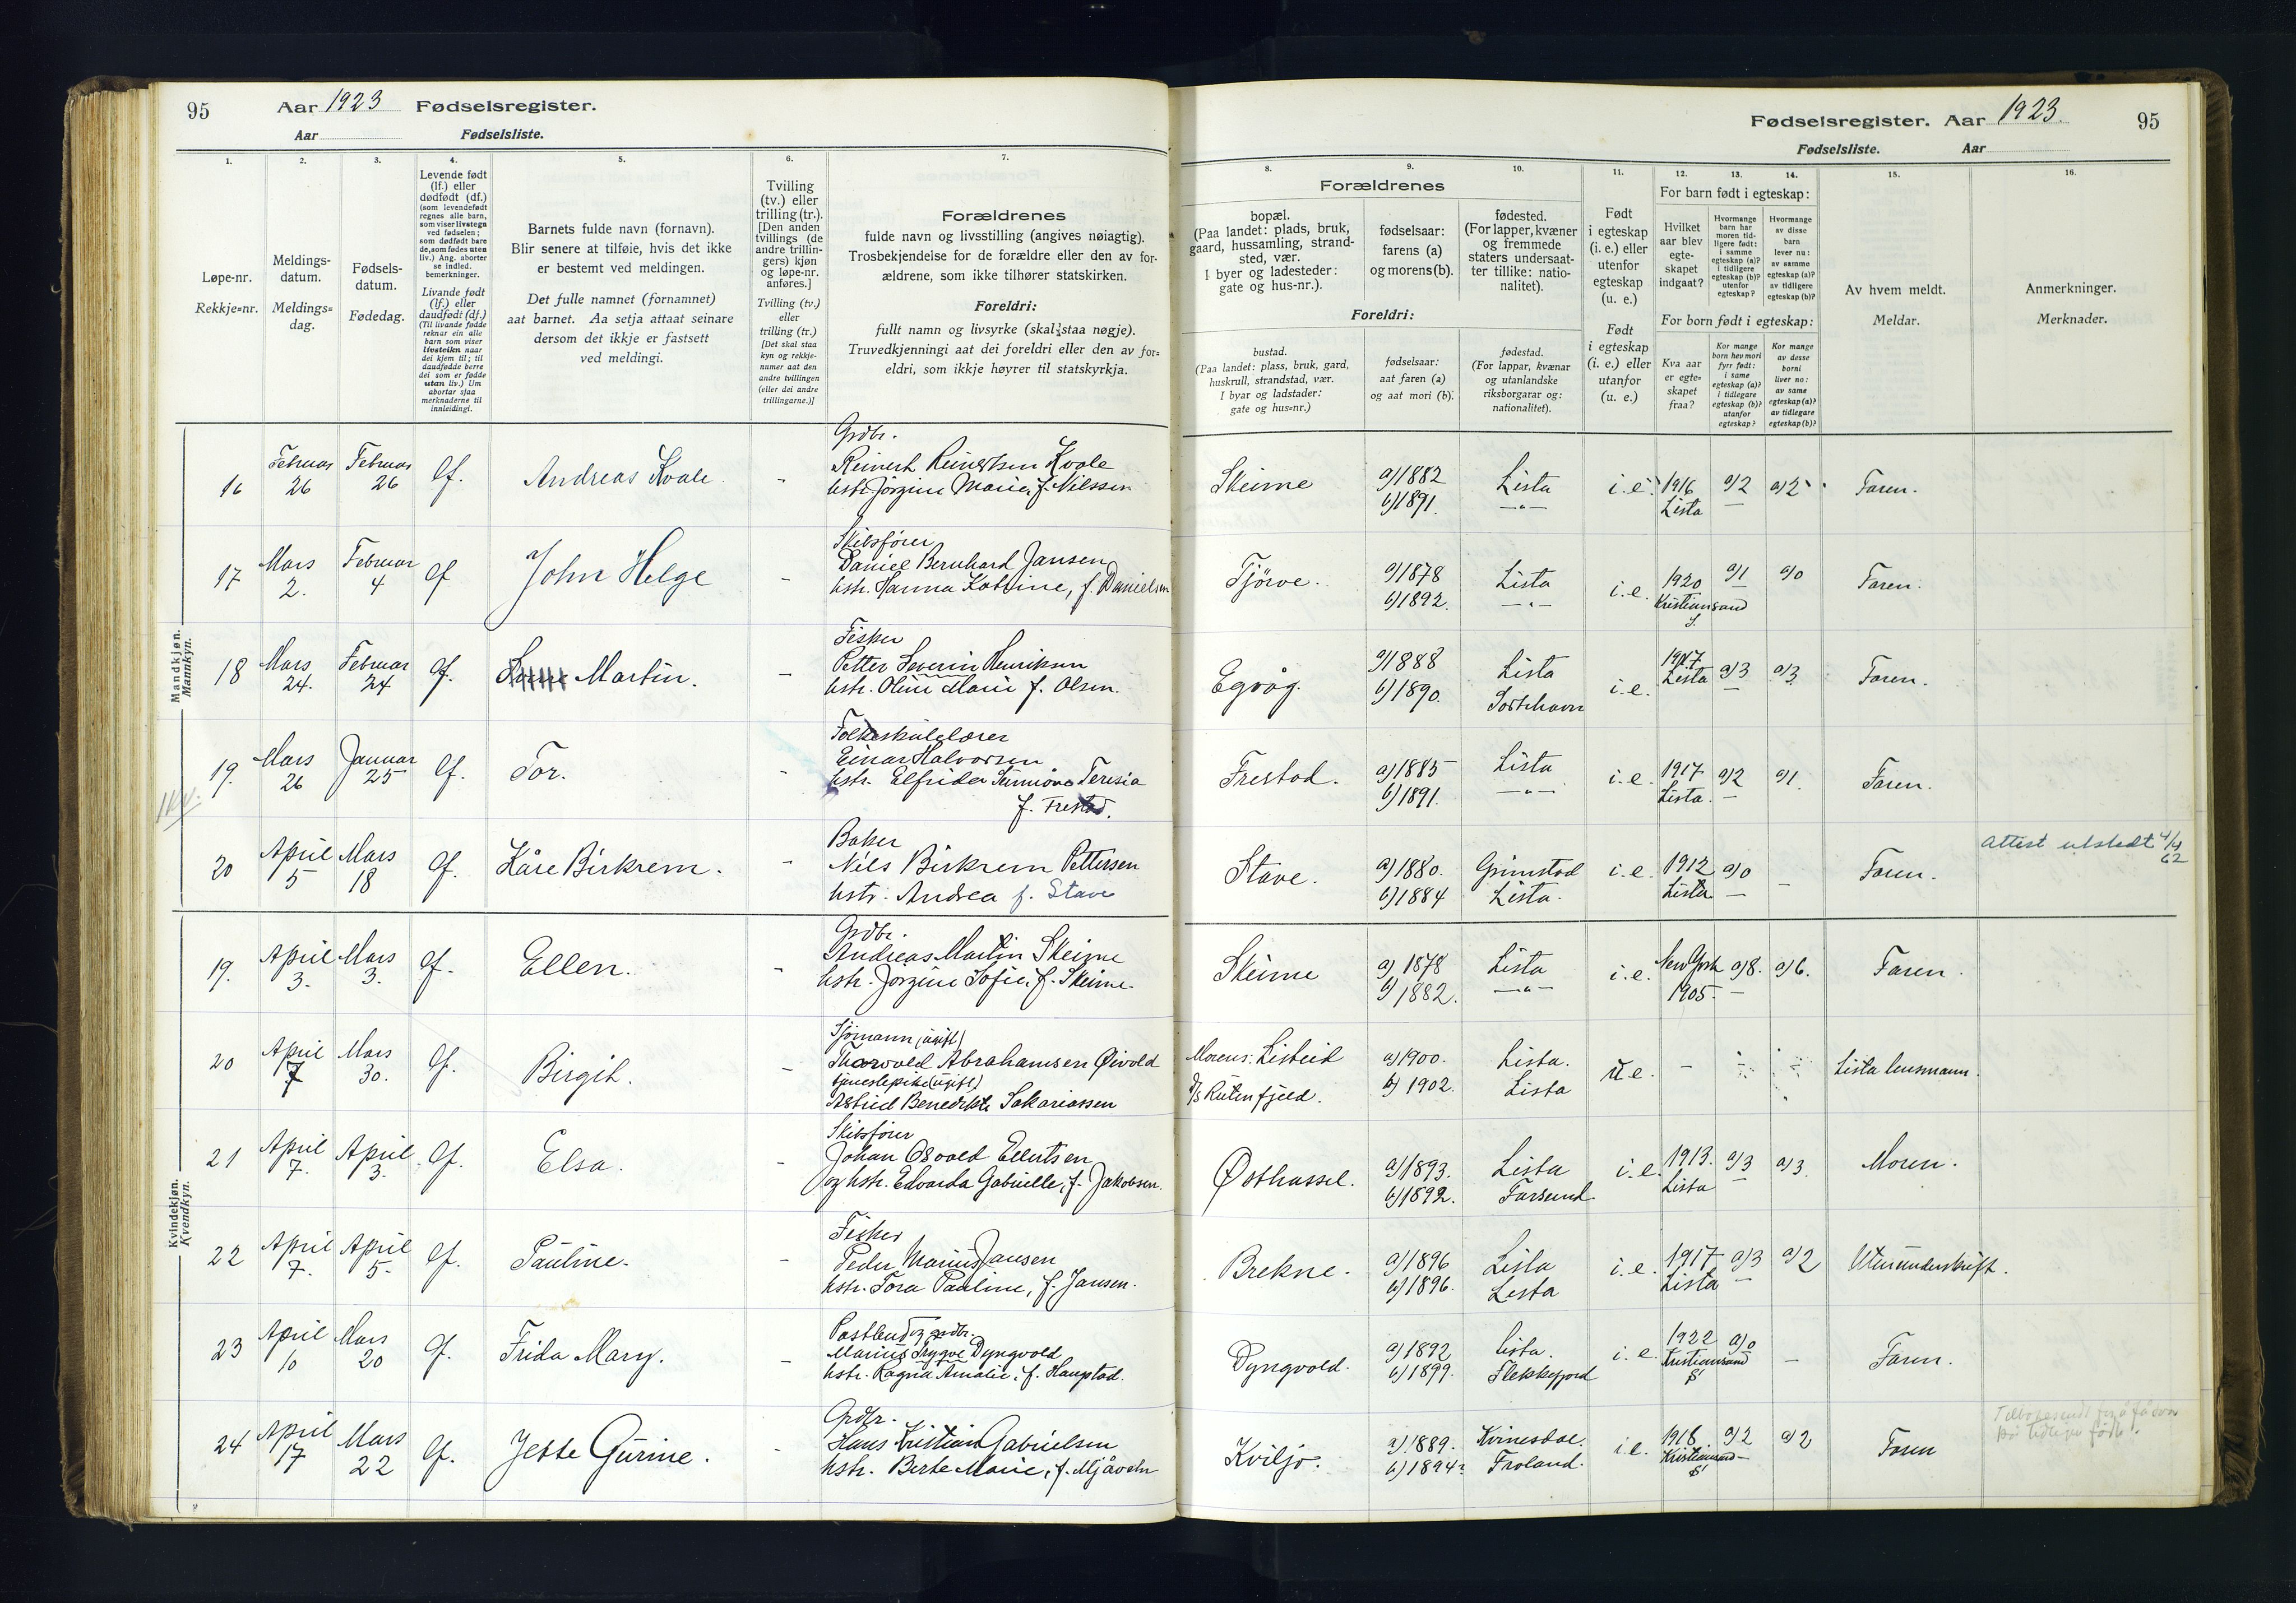 95 Aar 1923 Fødselsregister.
Aar Fødselsliste.
1.
2.
3.
4.
5.
6.
7.
Løpe-nr.
Rekkje=nr.
Meldings-
datum.
Meldings=
dag.
Fødsels-
datum.
Fødedag.
Levende født
(lf.) eller
dødfødt (df.)
(som levendefødt
regnes alle barn,
som viser livstegn
ved fødselen;
som dødfødt bare
de, som fødes uten
liv.) Ang. aborter
se indled.
bemerkninger.
Livande født
(lf.) eller
daudfødt (df.)
(Til livande fødde
reknar ein alle
barn som viser
livsteikn naar
dei kjem til; til
daudfødde berre
dei som er fødde
utan liv.) Um
abortar sjaa
merknaderne til
innleidingi.
Barnets fulde navn (fornavn).
Blir senere at tilføie, hvis det ikke
er bestemt ved meldingen.
Det fulle namnet (fornamnet)
aat barnet. Aa setja attaat seinare
dersom det ikkje er fastsett
ved meldingi.
Tvilling
(tv.) eller
trilling (tr.).
[Den anden
tvillings (de
andre trillin-
gers) kjøn
og løpe-nr.
anføres.]
Tvilling (tv.)
eller
trilling (tr.)
[Det skal staa
kyn og rekkje-
numer aat den
andre tvillingen
(eller dei andre
trillingarne.)]
Forældrenes
fulde navn og livsstilling (angives nøiagtig).
Trosbekjendelse for de forældre eller den av for-
ældrene, som ikke tilhører statskirken.
Foreldri:
fullt namn og livsyrke (skal staa nøgje).
Truvedkjenningi aat dei foreldri eller den av for=
eldri, som ikkje høyrer til statskyrkja.
Mandkjøn.
Mannkyn.
16 Februar 26 Februar 26 lf. Andreas Kvale -
Grdbr.
Reinert Reinertsen Kvale
hstr. Jørgine Marie, f. Nilssen
17 Mars 2. Februar 4 lf John Helge -
Skibsfører
Daniel Bernhard Jansen
hstr. Hanna Katrine, f. Danielsen
18 Mars 24. Februar 24 lf. Martin. -
Fisker
Petter Severin Henriksen
hstr. Oline Marie f. Olsen.
19. Mars 26 Januar 25 lf. Tor. -
Folkeskolelærer
Einar Halvorsen
hstr. Elfrida Sunniøva Teresia
f. Frestad.
20 April 5 Mars 18 lf. Kåre Birkrem. -
Baker
Nils Birkrem Pettersen
hstr. Andrea f. Stave
Kvindekjøn.
Kvendkyn.
19. April 3. Mars 3. lf. Ellen. -
Grdbr.
Andreas Martin Skeime
hstr. Jørgine Sofie, f. Skeime.
20 April 7 Mars 30. lf. Birgit. -
Sjømann (ugift)
Thorvald Abrahamsen Øivold
tjenestepike (ugift)
Astrid Benedikte Sakariassen
21 April 7. April 3. lf. Elsa. -
Skibsfører
Johan Osvald Ellertsen
og hstr. Edvarda Gabrielle, f. Jakobsen.
22 April 7. April 5. lf. Pauline. -
Fisker
Peder Marius Jansen
hstr. Tora Pauline, f. Jansen.
23 April 10 Mars 20 lf. Frida Mary. -
Postbud og grdbr.
Marius Trygve Dyngvold
hstr. Ragna Amalie, f. Haugstad.
24 April 17 Mars 22 lf. Jette Gurine. -
Grdbr.
Hans Kristian Gabrielsen
hstr. Berte Marie, f. Mjåvatn
Fødselsregister. Aar 1923. 95
Fødselsliste. Aar
8.
9.
10.
11.
12.
13.
14.
15.
16.
Forældrenes
bopæl.
(Paa landet: plads, bruk,
gaard, hussamling, strand-
sted, vær.
I byer og ladesteder:
gate og hus-nr.).
fødselsaar:
farens (a)
og morens (b).
fødested.
(For lapper, kvæner
og fremmede
staters undersaat-
ter tillike: natio-
nalitet).
Foreldri:
bustad.
(Paa landet: plass, bruk, gard,
huskrull, strandstad, vær.
I byar og ladstader:
gate og hus=nr.)
fødselsaar:
aat faren (a)
og aat mori (b).
fødestad.
(For lappar, kvænar
og utanlandske
riksborgarar og:
nationalitet).
Født
i egteskap
(i. e.) eller
utenfor
egteskap
(u. e.)
Født
i egteskap
(i. e.) eller
utanfor
(u. e.)
For barn født i egteskap:
Hvilket
aar blev
egte-
skapet
indgaat?
Hvormange
barn har
moren tid-
ligere født:
i samme
egteskap (a)?
i tidligere
egteskap (b)?
utenfor
egteskap?
Hvormange
av disse
barn
lever nu:
av samme
egteskap (a)?
av tidligere
egteskap (b)?
For born født i egteskap:
Kva aar
er egte=
skapet
fraa?
Kor mange
born hev mori
fyrr født:
i same
egteskap (a)?
i tidlegare
egteskap (b)?
utanfor
egteskap?
Kor mange
av desse
borni
liver no:
av same
egteskap (a)?
av tidlegare
egteskap (b)?
Av hvem meldt.
Meldar.
Anmerkninger.
Merknader.
Skeime a) 1882 b) 1891. Lista —"— i. e. 1916 Lista a) 2 — a) 2 Faren.
Tjörve. a) 1878 b) 1892. Lista —"— i. e. 1920 Kristiansand S. a) 1 — a) 0 Faren.
Egvåg. a) 1888 b) 1890. Lista i. e. 1917 Lista a) 3 — a) 3. Faren.
Frestad. a) 1885 b) 1891. Lista —"— i. e. 1917 Lista. a) 2 — a) 1. Faren.
Stave. a) 1880. b) 1884 Grimstad Lista. i. e. 1912 Lista a) 0 — - Faren. Attest utstedt 4/4 62
Skeime a) 1878 b) 1882. Lista —"— i. e. New York 1905. a) 8. — a) 6. Faren.
Morens: Listeid a) 1900. b) 1902. Lista. Lista u. e. - Lista lensmann.
D/S Rutenfjeld.
Østhassel. a) 1893. b) 1892. Lista Farsund i. e. 1913. Lista a) 3 — a) 3. Moren.
Brekne. a) 1896 b) 1896. Lista Lista i. e. 1917 Lista a) 3 — a) 2 Uten underskrift.
Dyngvold. a) 1892 b) 1899. Lista. Flekkefjord i. e. 1922 Kristiansand S. a) 0 — Faren.
Kviljo. a) 1889. b) 1894? Kvinesdal. Froland. i. e. 1918 Kristiansand S. a) 2 — a) 2 Faren